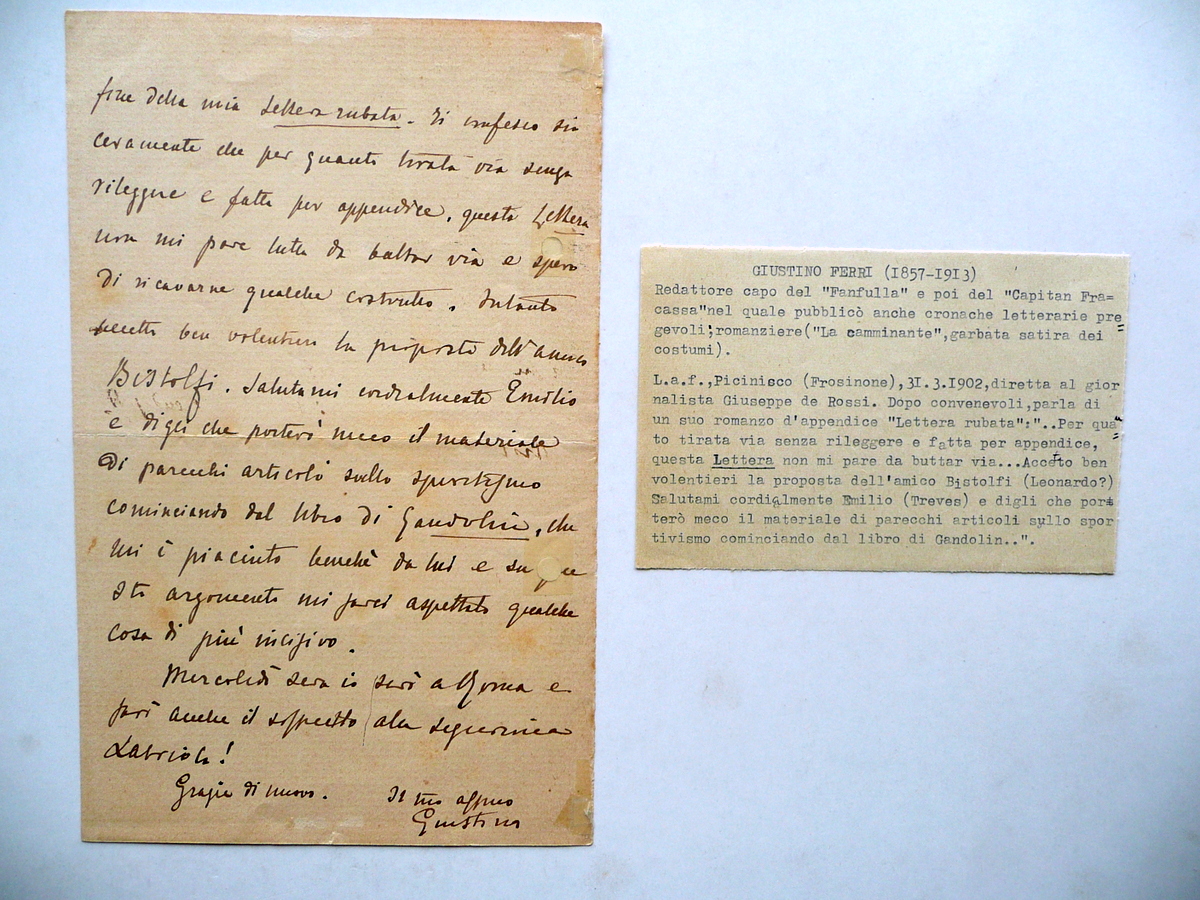 fine della mia Lettera rubata. Ti confesso sin
ceramente che per quanto tirata via senza
rileggere e fatta per appendice, questa Lettera
non mi pare tutta da buttar via e spero
di ricavarne qualche costrutto. Intanto
accetto ben volentieri la proposta dell'amico
Bistolfi. Salutami cordialmente Emilio
e digli che porterò meco il materiale
di parecchi articoli sullo sportismo
cominciando dal libro di Gandolin, che
mi è piaciuto benchè da lui e su que
sto argomento mi sarei aspettato qualche
cosa di più incisivo.
Mercoledì sera io sarò a Roma e
farò anche il soffietto alla signorina
Labriola!
Grazie di nuovo. Il tuo affmo
Giustino
GIUSTINO FERRI (1857-1913)
Redattore capo del "Fanfulla" e poi del "Capitan Fra=
cassa"nel quale pubblicò anche cronache letterarie pre=
gevoli;romanziere("La camminante",garbata satira dei
costumi).
L.a.f.,Picinisco (Frosinone),31.3.1902,diretta al gior
nalista Giuseppe de Rossi. Dopo convenevoli,parla di
un suo romanzo d'appendice "Lettera rubata":"..Per qua=
to tirata via senza rileggere e fatta per appendice,
questa Lettera non mi pare da buttar via...Accetto ben
volentieri la proposta dell'amico Bistolfi (Leonardo?)
Salutami cordialmente Emilio (Treves) e digli che por=
terò meco il materiale di parecchi articoli syllo spor
tivismo cominciando dal libro di Gandolin..".